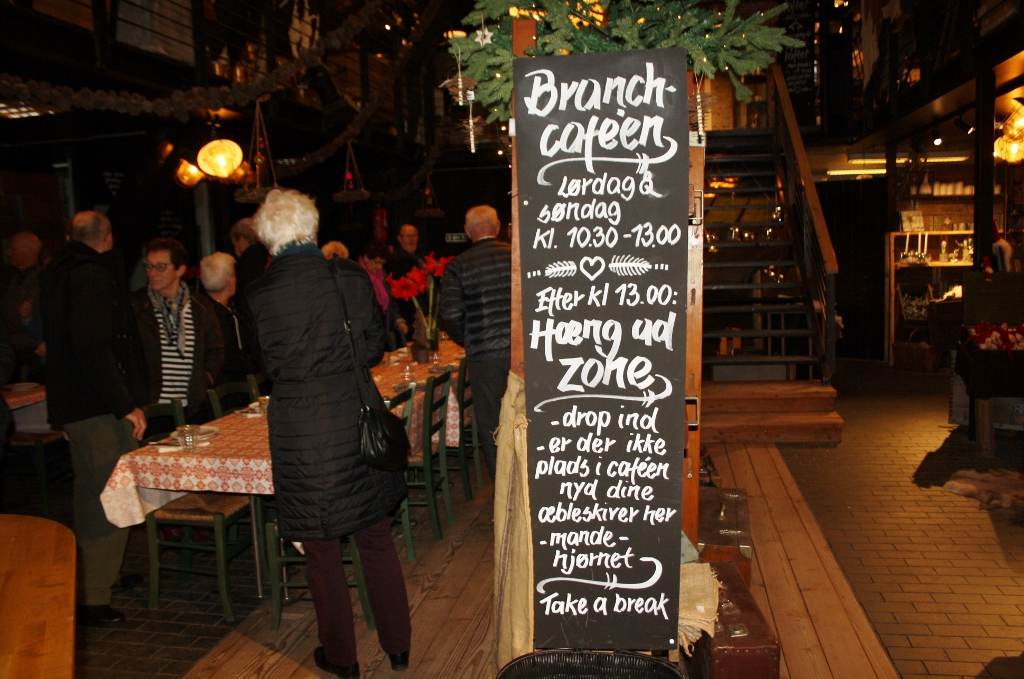 Brunch-
caféen
Lørdag &
søndag
Kl. 10.30 -13.00
Efter kl 13.00:
Hæng ud
zone
- drop ind
- er der ikke
plads i caféen
nyd dine
æbleskiver her
- mande-
hjørnet
Take a break